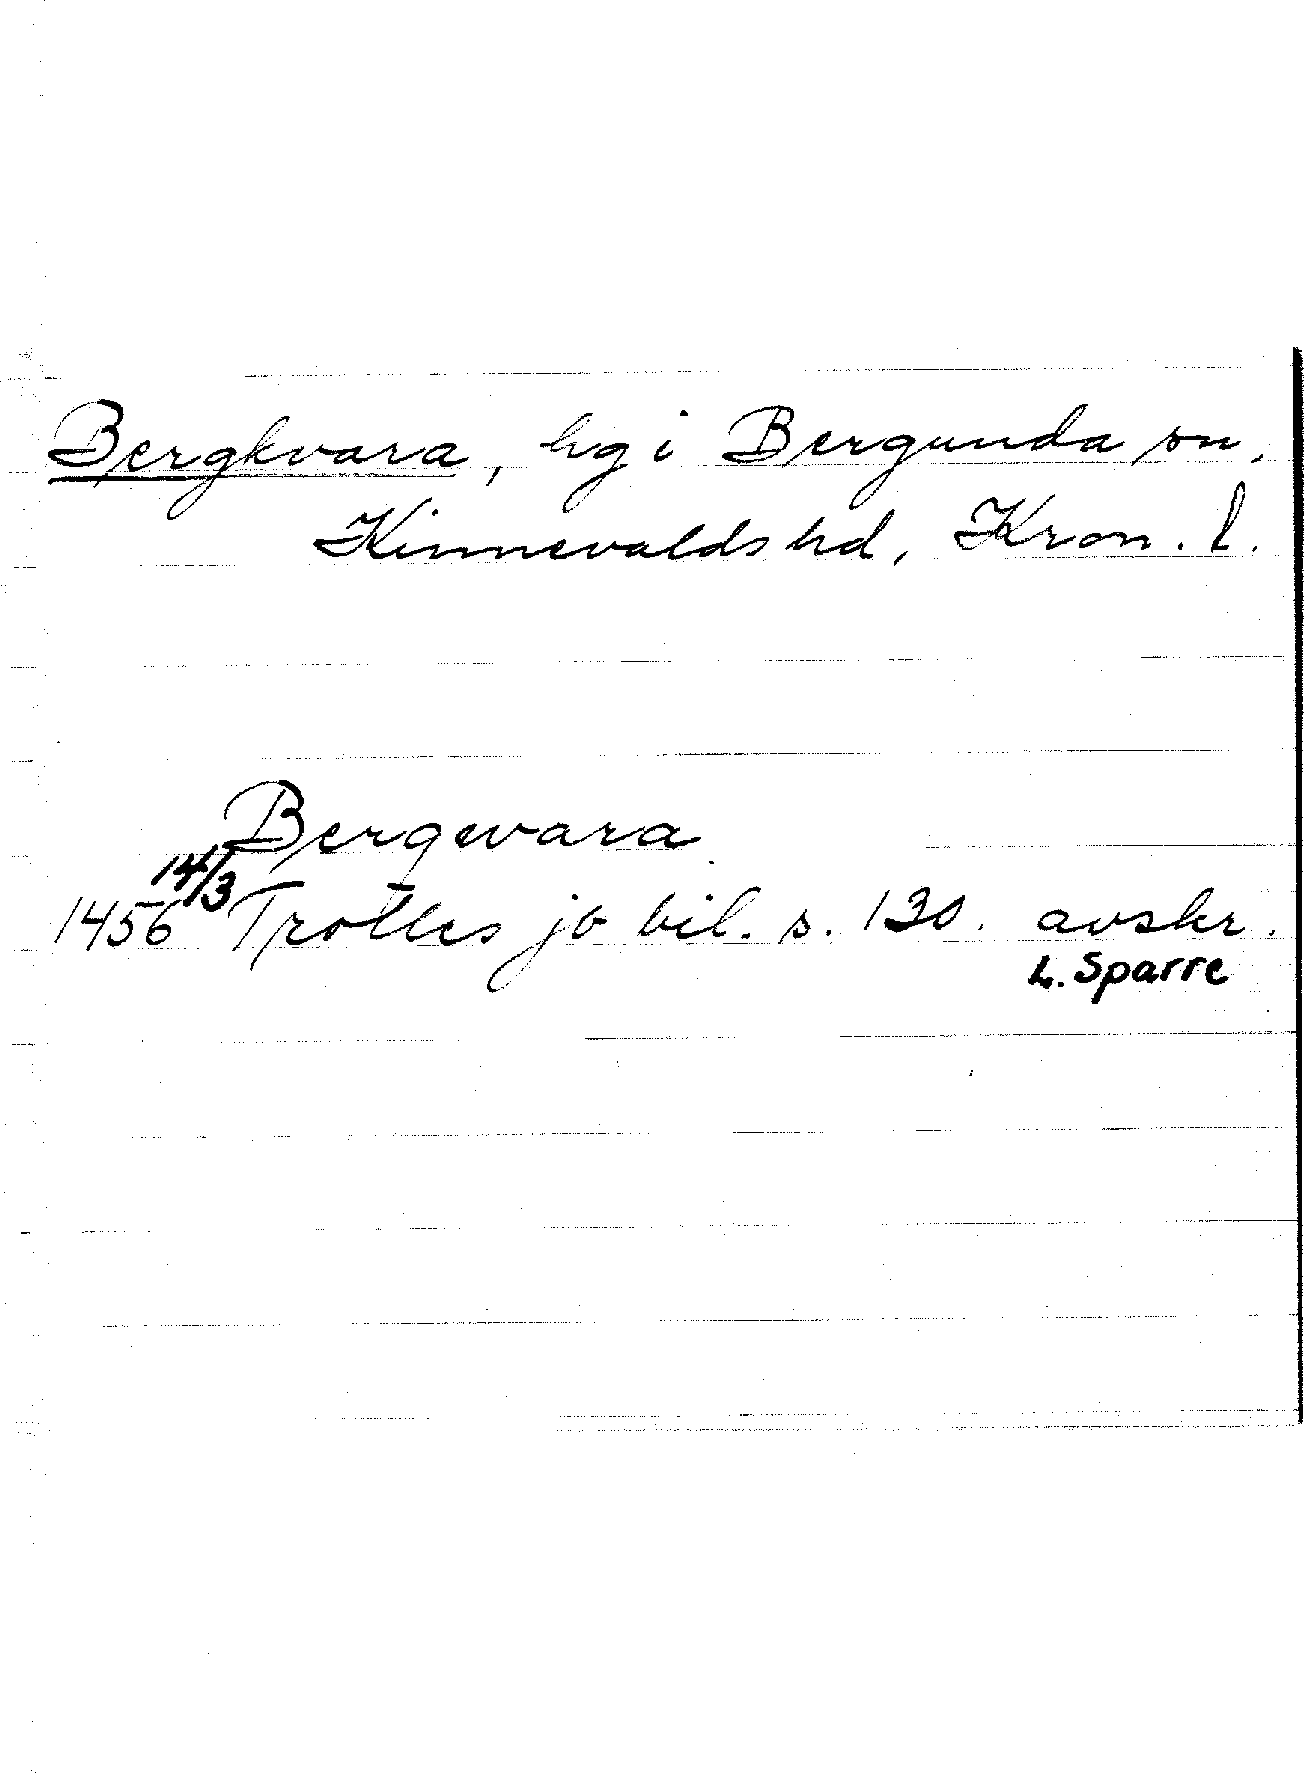 Bergkvara, hg i Bergunda sn,
Kinnevalds hd, Kron. l.
Bergqvara
1456 14/3 Trolles jb bil. s. 130. avskr.
L. Sparre